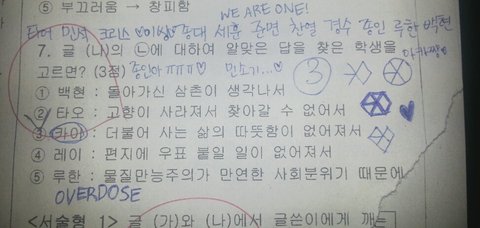 ⑤ 부끄러움 → 창피함
WE ARE ONE!
타오 민석 크리스 ♡이씽♡ 종대 세훈 준면 찬열 경수 종인 루한 백현
7. 글 (나)의 ㉡에 대하여 알맞은 답을 찾은 학생을
고르면? (3점) 종인아 ㅠㅠㅠ♡ 민소기...♡ ③
① 백현 : 돌아가신 삼촌이 생각나서
② 타오 : 고향이 사라져서 찾아갈 수 없어서
③ 카이 : 더불어 사는 삶의 따뜻함이 없어져서
④ 레이 : 편지에 우표 붙일 일이 없어져서
⑤ 루한 : 물질만능주의가 만연한 사회분위기 때문에
OVERDOSE
<서술형 1> 글 (가)와 (나)에서 글쓴이에게 깨